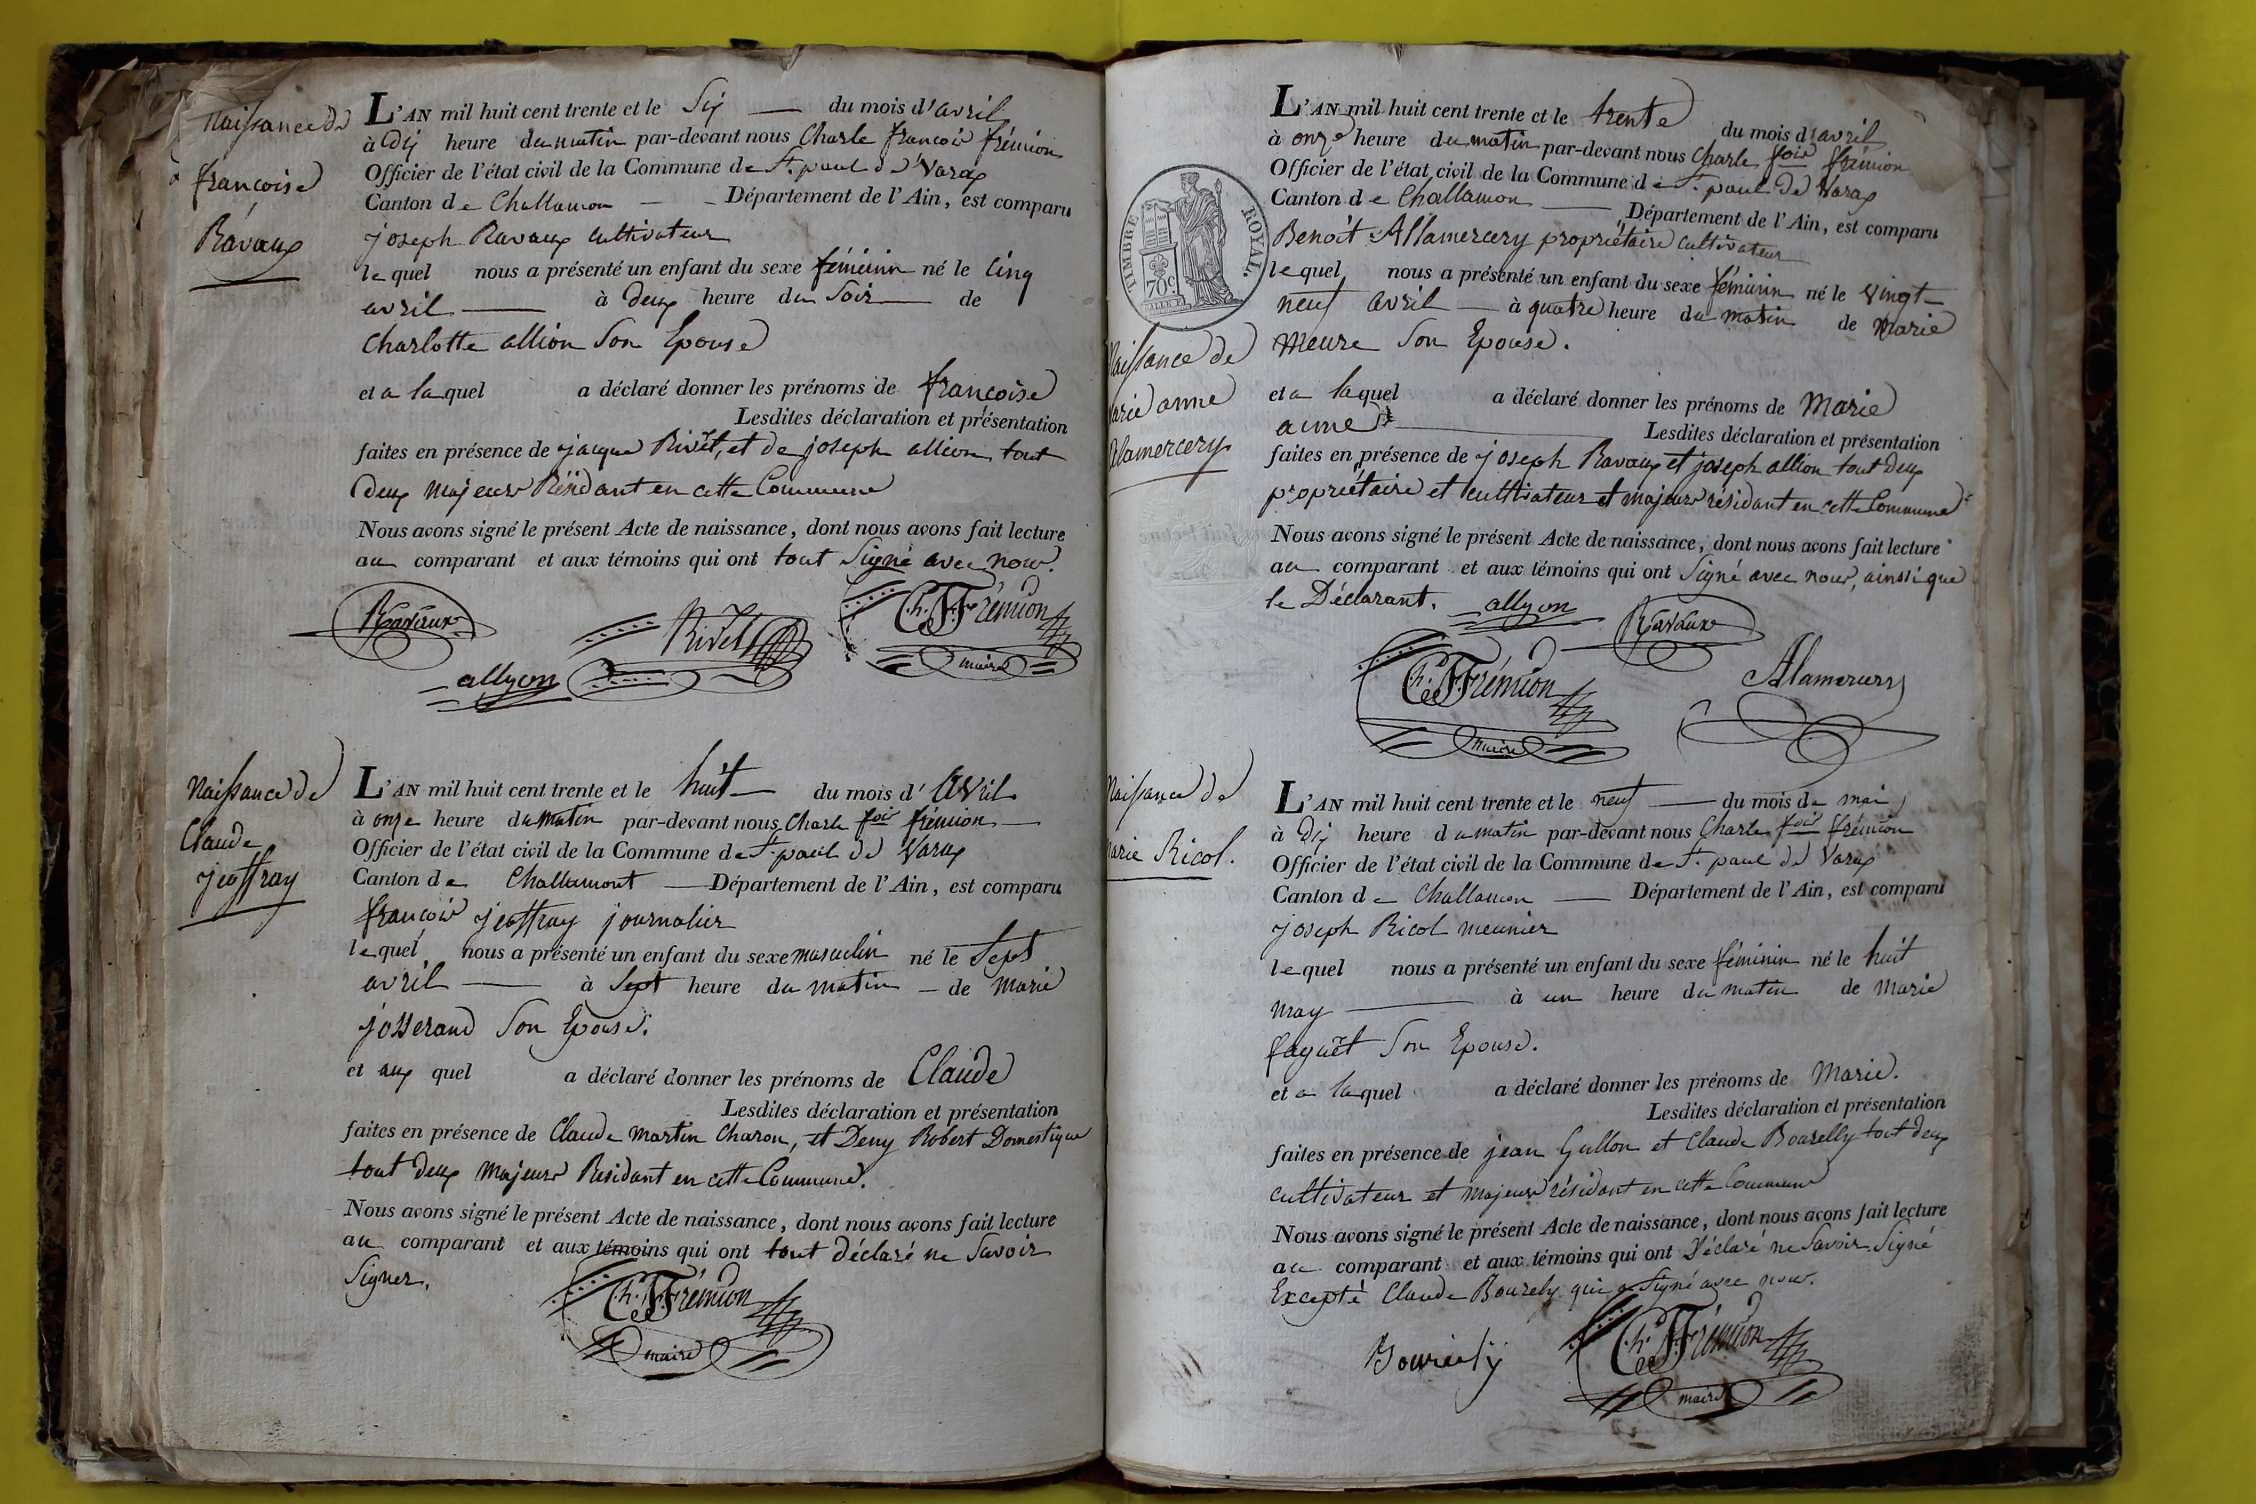 Naissance de
françoise
Ravaux
L'AN mil huit cent trente et le Six — du mois d'avril
à dix heure du matin par-devant nous Charle françois frémion
Officier de l'état civil de la Commune de St. paul de Varax
Canton de Challamon — Département de l'Ain, est comparu
joseph Ravaux cultivateur
lequel nous a présenté un enfant du sexe féminin né le Cinq
avril — à deux heure du Soir — de
Charlotte allion Son Epouse
et a laquel a déclaré donner les prénoms de françoise
Lesdites déclaration et présentation
faites en présence de jacque Rivet, et de joseph allion tout
deux majeurs Résidant en cette Commune
Nous avons signé le présent Acte de naissance, dont nous avons fait lecture
au comparant et aux témoins qui ont tout Signé avec nous.
Ravaux
Rivet
Ch. F. Frémion
maire
allyon
Naissance de
Claude
jeoffray
L'AN mil huit cent trente et le huit — du mois d'Avril
à onze heure du matin par-devant nous Charle fois frémion —
Officier de l'état civil de la Commune de St. paul de Varax
Canton de Challamont — Département de l'Ain, est comparu
françois jeoffray journalier
lequel nous a présenté un enfant du sexe masculin né le Sept
avril — à Sept heure du matin — de Marie
josserand Son Epouse.
et aux quel a déclaré donner les prénoms de Claude
Lesdites déclaration et présentation
faites en présence de Claude Martin Charon, et Deny Robert Domestique
tout deux Majeurs Résidant en cette Commune.
Nous avons signé le présent Acte de naissance, dont nous avons fait lecture
au comparant et aux témoins qui ont tout déclaré ne Savoir
Signer.
Ch. F. Frémion
maire
TIMBRE ROYAL.
70c
Naissance de
Marie anne
Alamercery
L'AN mil huit cent trente et le trente du mois d'avril
à onze heure du matin par-devant nous Charle fois frémion
Officier de l'état civil de la Commune de St. paul de Varax
Canton de Challamon — Département de l'Ain, est comparu
Benoit Allamercery propriétaire cultivateur
lequel nous a présenté un enfant du sexe féminin né le vingt-
neuf avril — à quatre heure du matin de Marie
Meure Son Epouse.
et a laquel a déclaré donner les prénoms de Marie
anne — Lesdites déclaration et présentation
faites en présence de joseph Ravaux et joseph allion tout deux
propriétaire et cultivateur et majeurs résidant en cette Commune
Nous avons signé le présent Acte de naissance, dont nous avons fait lecture
au comparant et aux témoins qui ont Signé avec nous, ainsi que
le Déclarant.
allyon
Ravaux
Ch. F. Frémion
maire
Alamercery
Naissance de
Marie Ricol.
L'AN mil huit cent trente et le neuf — du mois de mai
à Dix heure du matin par-devant nous Charle fois frémion
Officier de l'état civil de la Commune de St. paul de Varax
Canton de Challamon — Département de l'Ain, est comparu
joseph Ricol meunier
lequel nous a présenté un enfant du sexe féminin né le huit
may — à un heure du matin de Marie
faguet Son Epouse.
et a laquel a déclaré donner les prénoms de Marie.
Lesdites déclaration et présentation
faites en présence de jean Gullon et Claude Bourelly tout deux
cultivateur et majeurs résidant en cette Commune
Nous avons signé le présent Acte de naissance, dont nous avons fait lecture
au comparant et aux témoins qui ont Déclaré ne Savoir Signé
Excepté Claude Bourely qui a Signé avec nous.
Ch. F. Frémion
maire